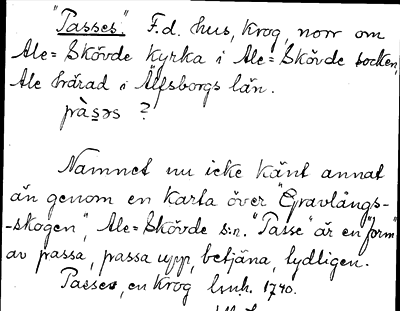 "Passes." F.d. hus, krog, norr om
Ale=Skövde kyrka i Ale=Skövde socken,
Ale härad i Älfsborgs län.
pàsəs ?
Namnet nu icke känt annat
än genom en karta över "Gravlångs-
-skogen", Ale=Skövde s:n. "Passe" är en "form"
av passa, passa upp, betjäna, tydligen.
Passes, en krog 1740.